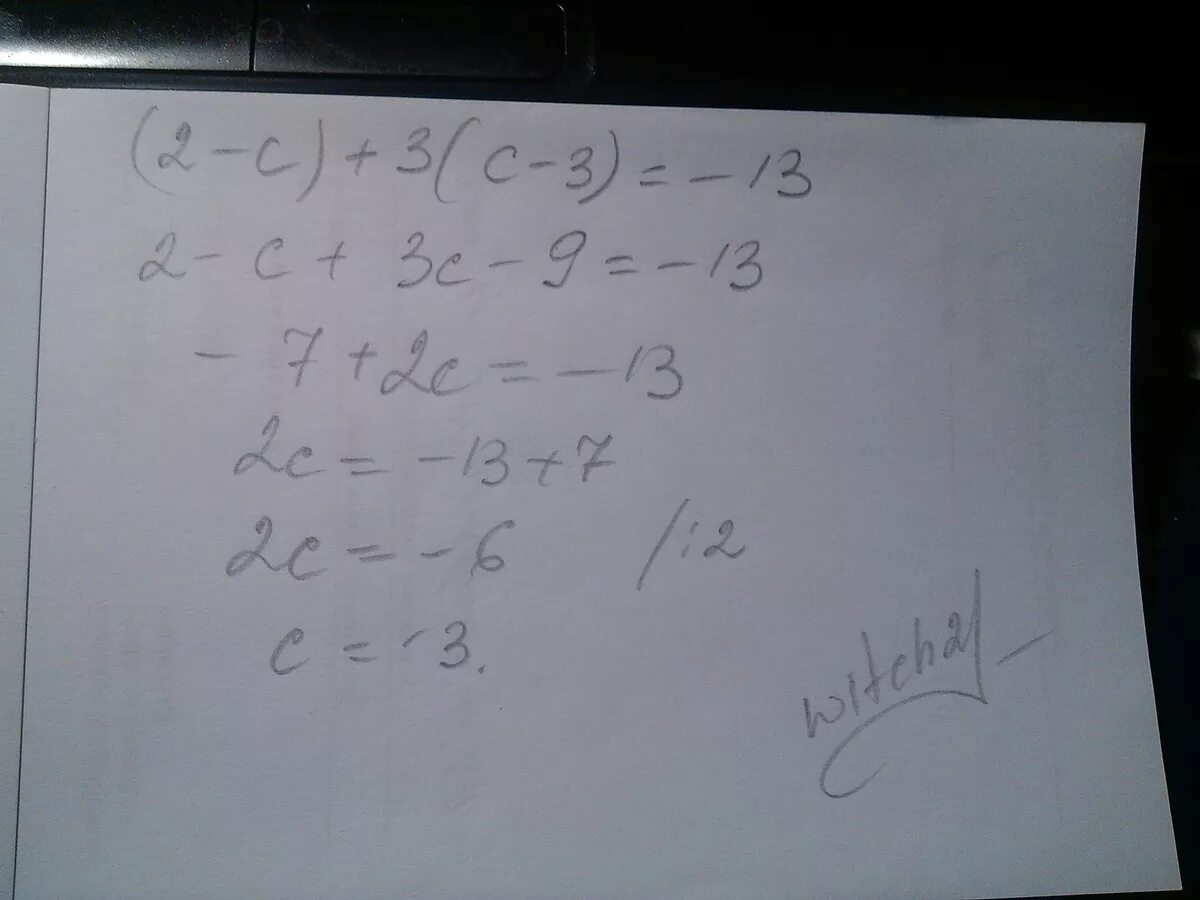 (2-c)+3(c-3)=-13
2-c+3c-9=-13
-7+2c=-13
2c=-13+7
2c=-6 /:2
c=-3.
witcha21